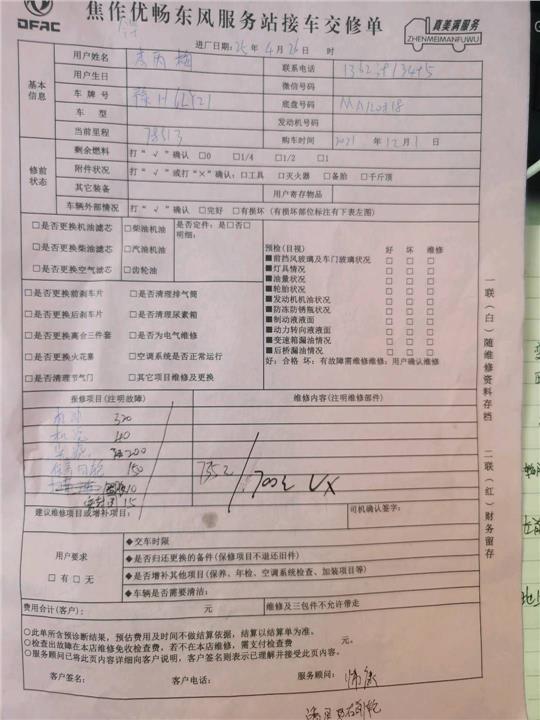 DFAC
焦作优畅东风服务站接车交修单
真美满服务
ZHENMEIMANFUWU
进厂日期：25年4月26日 时
基本信息
用户姓名
联系电话
用户生日
微信号码
车牌号
底盘号码
车型
发动机号码
当前里程 78513
购车时间 2021年12月1日
修前状态
剩余燃料 打“√”确认 □0 □1/4 □1/2 □1
附件状况 打“√”或打“×”确认：□工具 □灭火器 □备胎 □千斤顶
其它装备 用户寄存物品
车辆外部情况 打“√”确认 □完好 □有损坏（有损坏部位标注有下表左图）
□是否更换机油滤芯 □柴油机油 是否定件：是□否□
明细：
□是否更换柴油滤芯 □汽油机油
□是否更换空气油芯 □齿轮油
预检（目视） 好 坏 维修
■前挡风玻璃及车门玻璃状况 □ □ □
■灯具情况 □ □ □
■油量状况 □ □ □
■轮胎状况 □ □ □
■发动机机油状况 □ □ □
■防冻防锈瓶状况 □ □ □
■制动液液面 □ □ □
■动力转向液液面 □ □ □
■变速箱漏油情况 □ □ □
■后桥漏油情况 □ □ □
好：合格 坏：有故障需维修维修：用户确认维修
□是否更换前刹车片 □是否清理排气筒
□是否更换后刹车片 □是否清理尿素箱
□是否更换离合三件套 □是否为电气维修
□是否更换火花塞 □空调系统是否正常运行
□是否清理节气门 □其它项目维修及更换
报修项目（注明故障） 维修内容（注明维修部件）
320
机滤 40
200
150
10
15
735元
700元 VX
建议维修项目或增补项目：
司机确认签字：
用户要求
□有□无
◆交车时限
◆是否归还更换的备件（保修项目不退还旧件）
◆是否增补其他项目（保养、年检、空调系统检查、加装项目等）
◆车辆是否需要清洁：
费用合计（客户）： 元 维修及三包件不允许带走
○此单所含预诊断结果，预估费用及时间不做结算依据，结算以结算单为准。
○检查出故障在本店维修免收检查费，若不在本店维修，需支付检查费 元。
○服务顾问已将此页内容详细向客户说明，客户签名则表示已理解并接受此页内容。
客户签名： 客户电话： 服务顾问：
一联（白）随维修资料存档
二联（红）财务留存